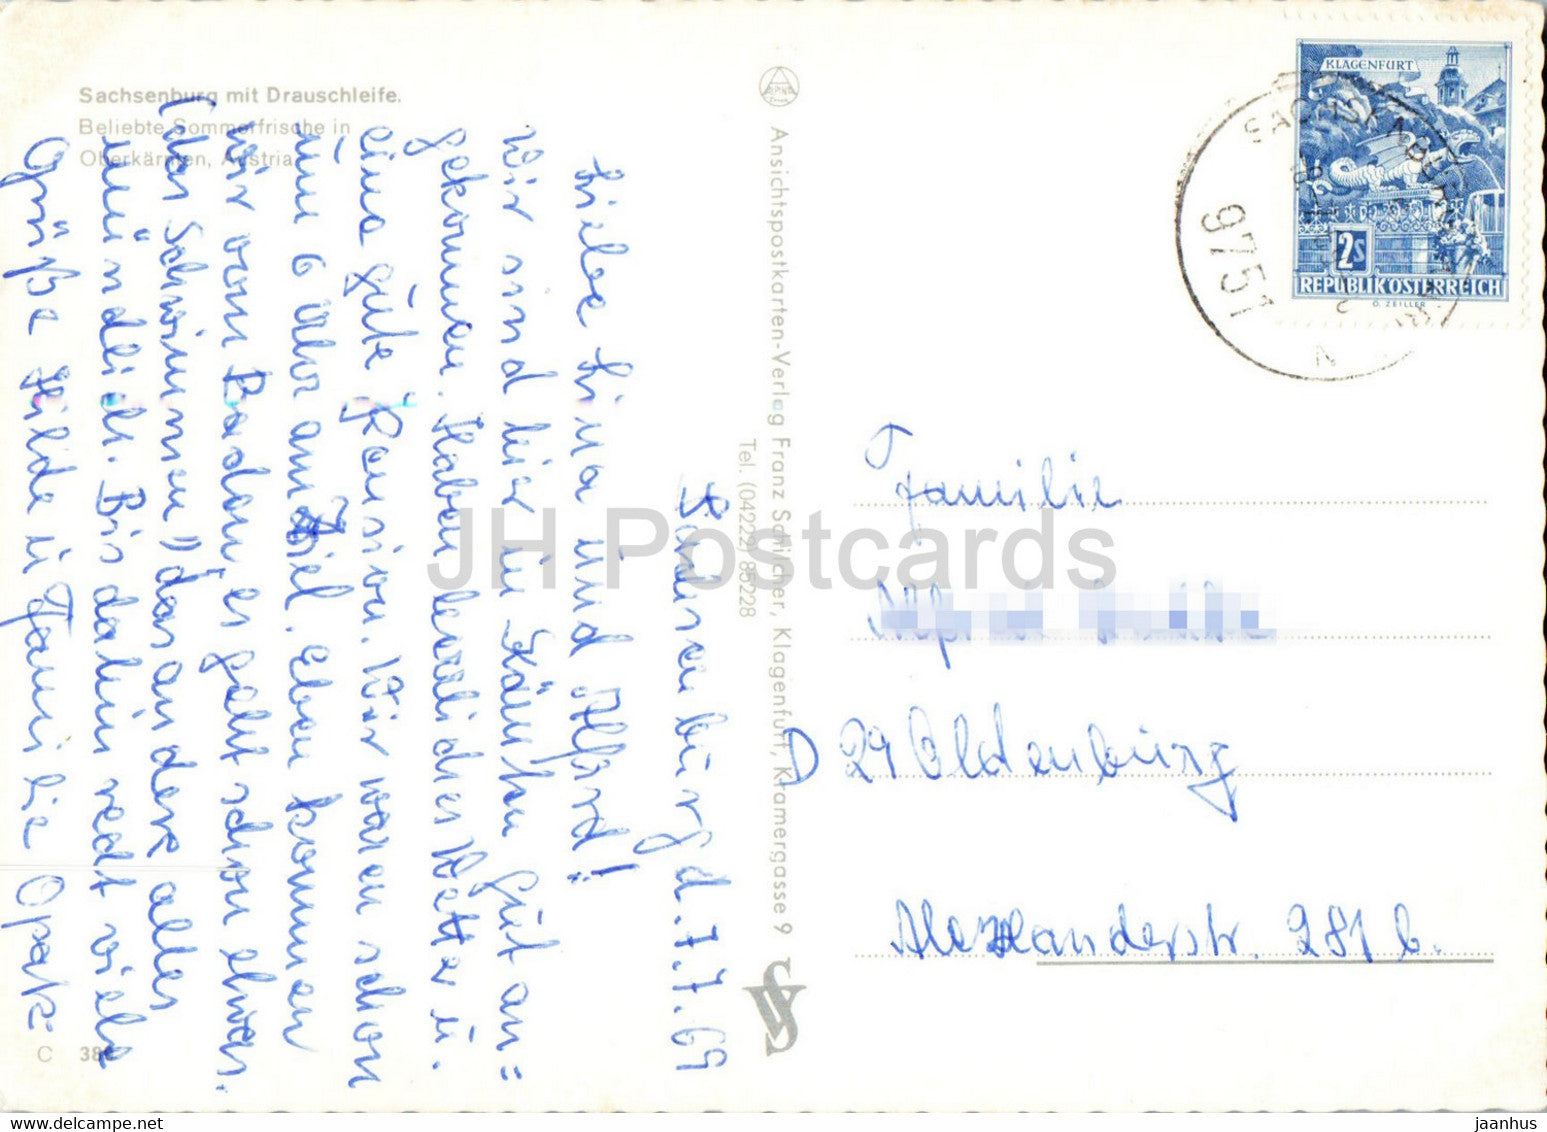 Sachsenburg mit Drauschleife.
Beliebte Sommerfrische in
Oberkärnten, Austria
Sachsenburg d. 7.7.69
Liebe Lina und Alfred!
Wir sind hier in Kärnten gut an=
gekommen. Haben herrliches Wetter u.
eine gute Pension. Wir waren schon
um 6 Uhr am Ziel. Eben kommen
wir vom Baden, es geht schon etwas.
(das Schwimmen) das andere alles
mündlich. Bis dahin recht viele
Grüße Hilde u Familie Opak
C 38
Ansichtspostkarten-Verlag Franz Schilcher, Klagenfurt, Kramergasse 9
Tel. (04222) 85228
KLAGENFURT
2s
REPUBLIK ÖSTERREICH
O. ZEILLER
SACHSENBURG
9751
Familie
D 29 Oldenburg
Alexanderstr. 281 b.
JH Postcards
delcampe.net
jaanhus